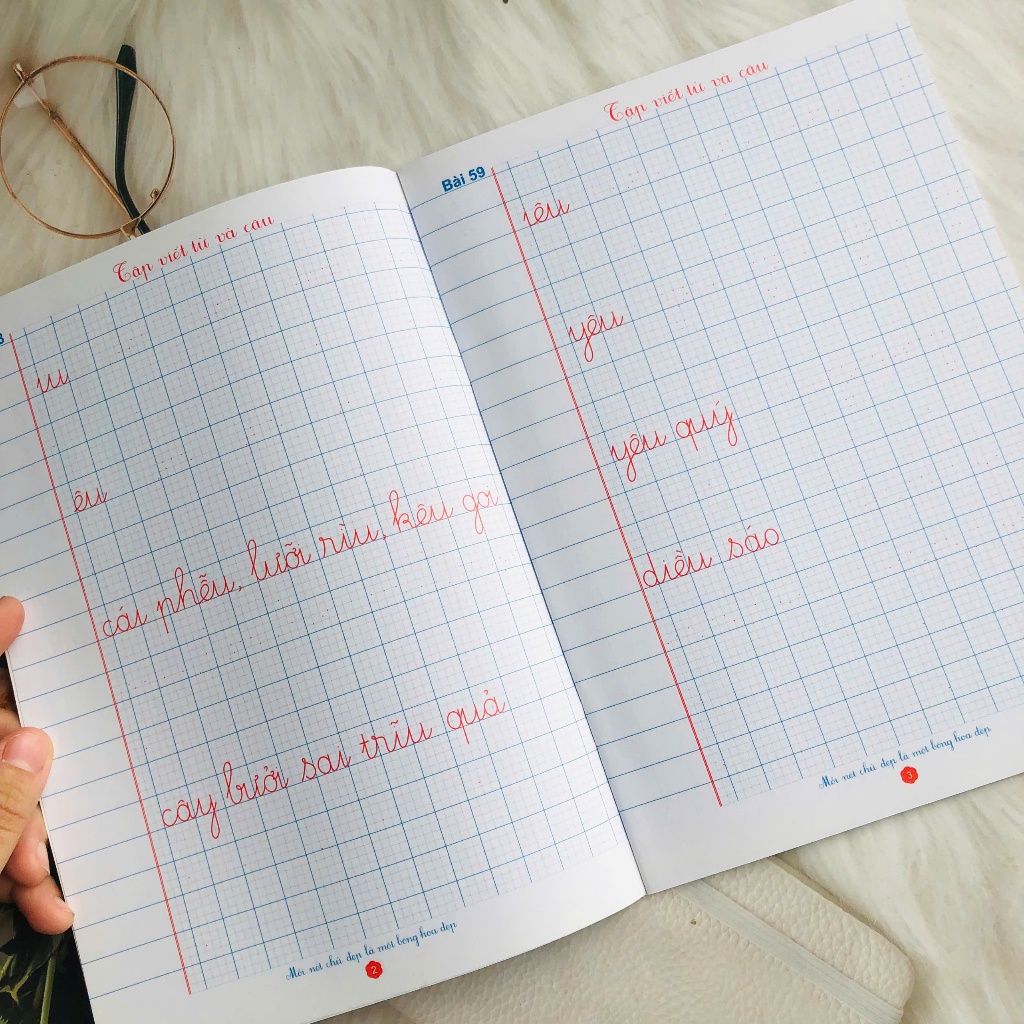 Tập viết từ và câu
iu
êu
cái phễu, lưỡi rìu, kêu gọi
cây bưởi sai trĩu quả
Mỗi nét chữ đẹp là một bông hoa đẹp
2
Tập viết từ và câu
Bài 59
iêu
yêu
yêu quý
diều sáo
Mỗi nét chữ đẹp là một bông hoa đẹp
3